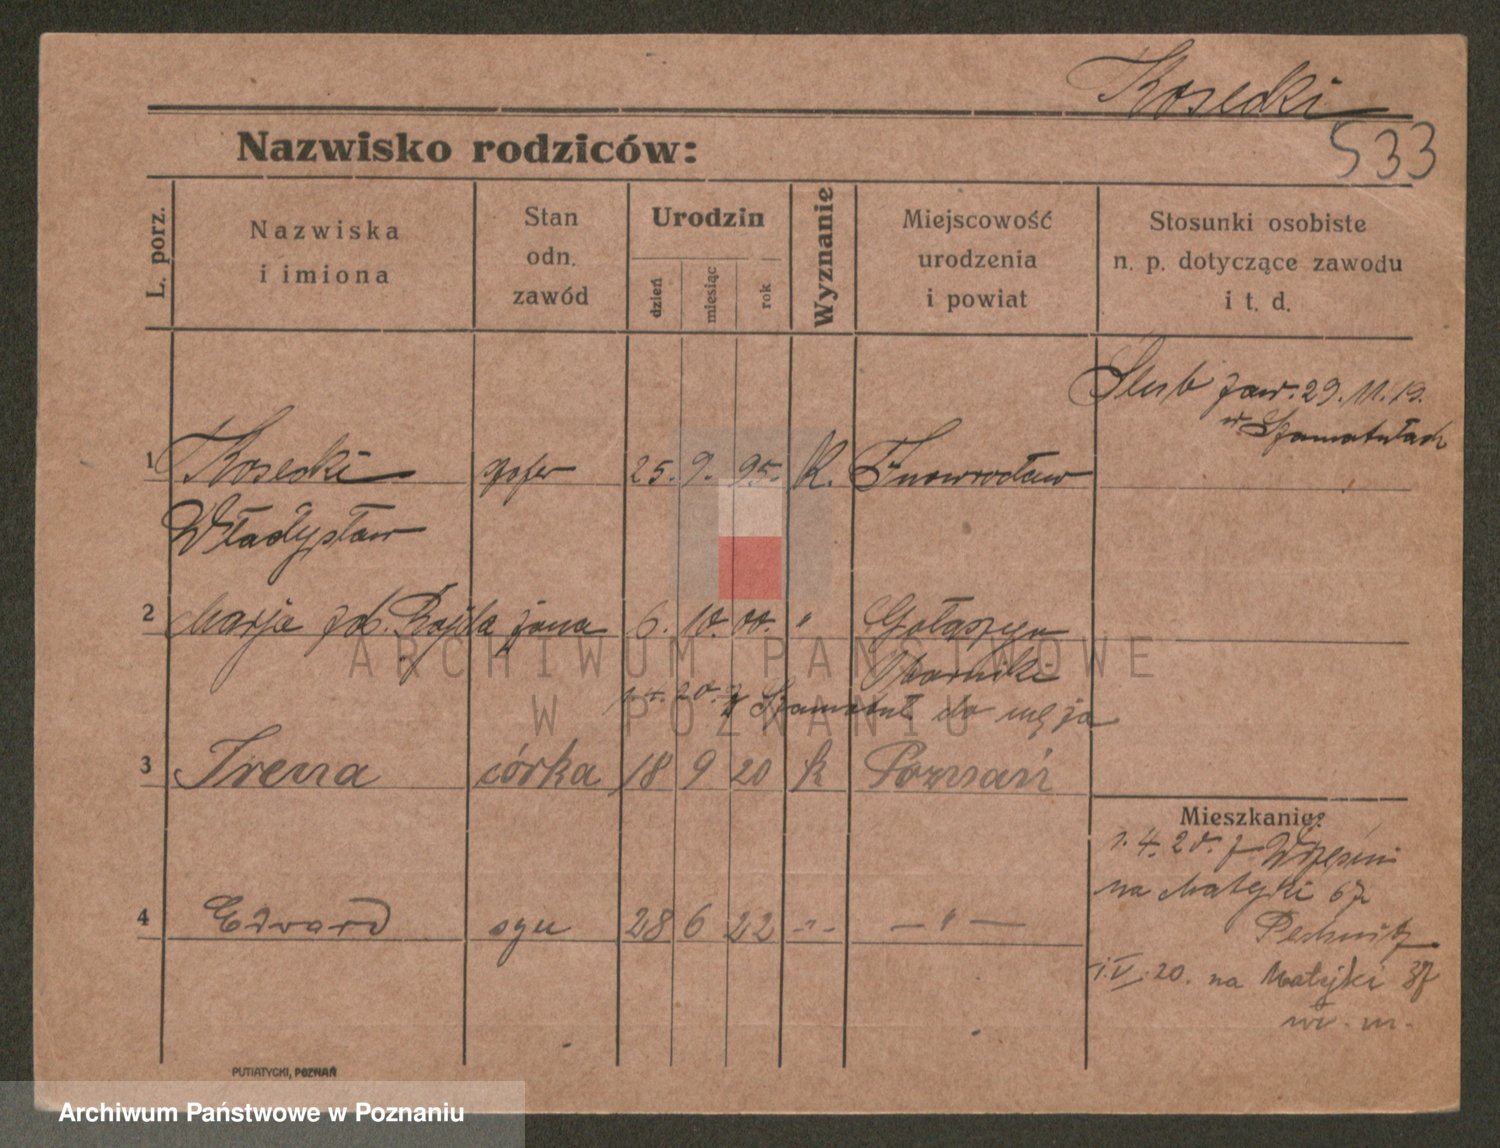 Kosecki
533
Nazwisko rodziców:
L. porz.
Nazwiska
i imiona
Stan
odn.
zawód
Urodzin
dzień
miesiąc
rok
Wyznanie
Miejscowość
urodzenia
i powiat
Stosunki osobiste
n. p. dotyczące zawodu
i t. d.
Ślub zaw. 29.11.19.
w Szamotułach
1 Kosecki szofer 25. 9. 95. K. Inowrocław
Władysław
2 Marja żona 6. 10. 00. " Gołaszyn
Oborniki
20. z Szamotuł do męża
3 Irena córka 18 9 20 k Poznań
Mieszkanie:
1.4.20. z Wrześni
na Matejki 67
4 Edward syn 28 6 22 -"- —"—
1.V.20. na Matejki
PUTIATYCKI, POZNAŃ
ARCHIWUM PAŃSTWOWE
W POZNANIU
Archiwum Państwowe w Poznaniu